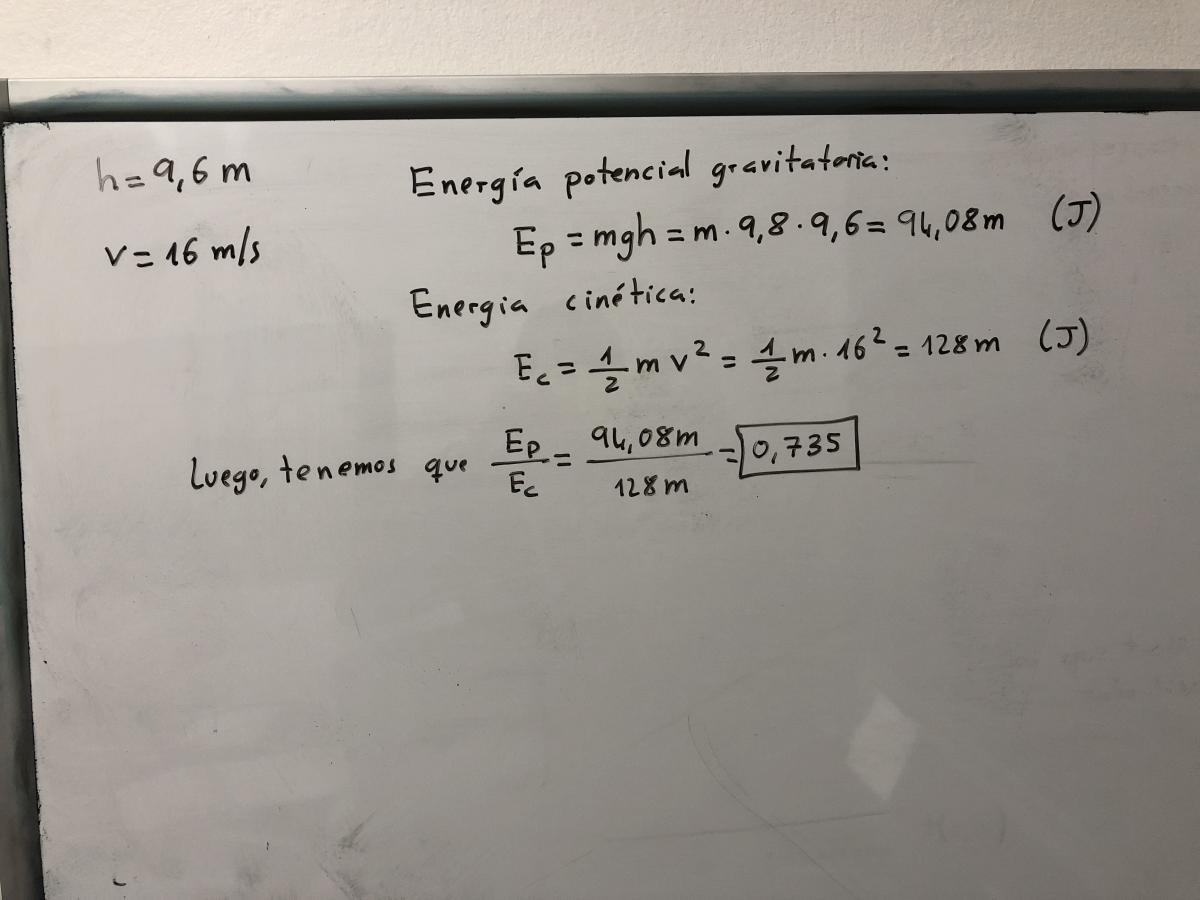 h = 9,6 m
v = 16 m/s
Energía potencial gravitatoria:
Ep = mgh = m · 9,8 · 9,6 = 94,08 m (J)
Energia cinética:
Ec = 1/2 m v² = 1/2 m · 16² = 128 m (J)
Luego, tenemos que Ep/Ec = 94,08 m / 128 m = 0,735